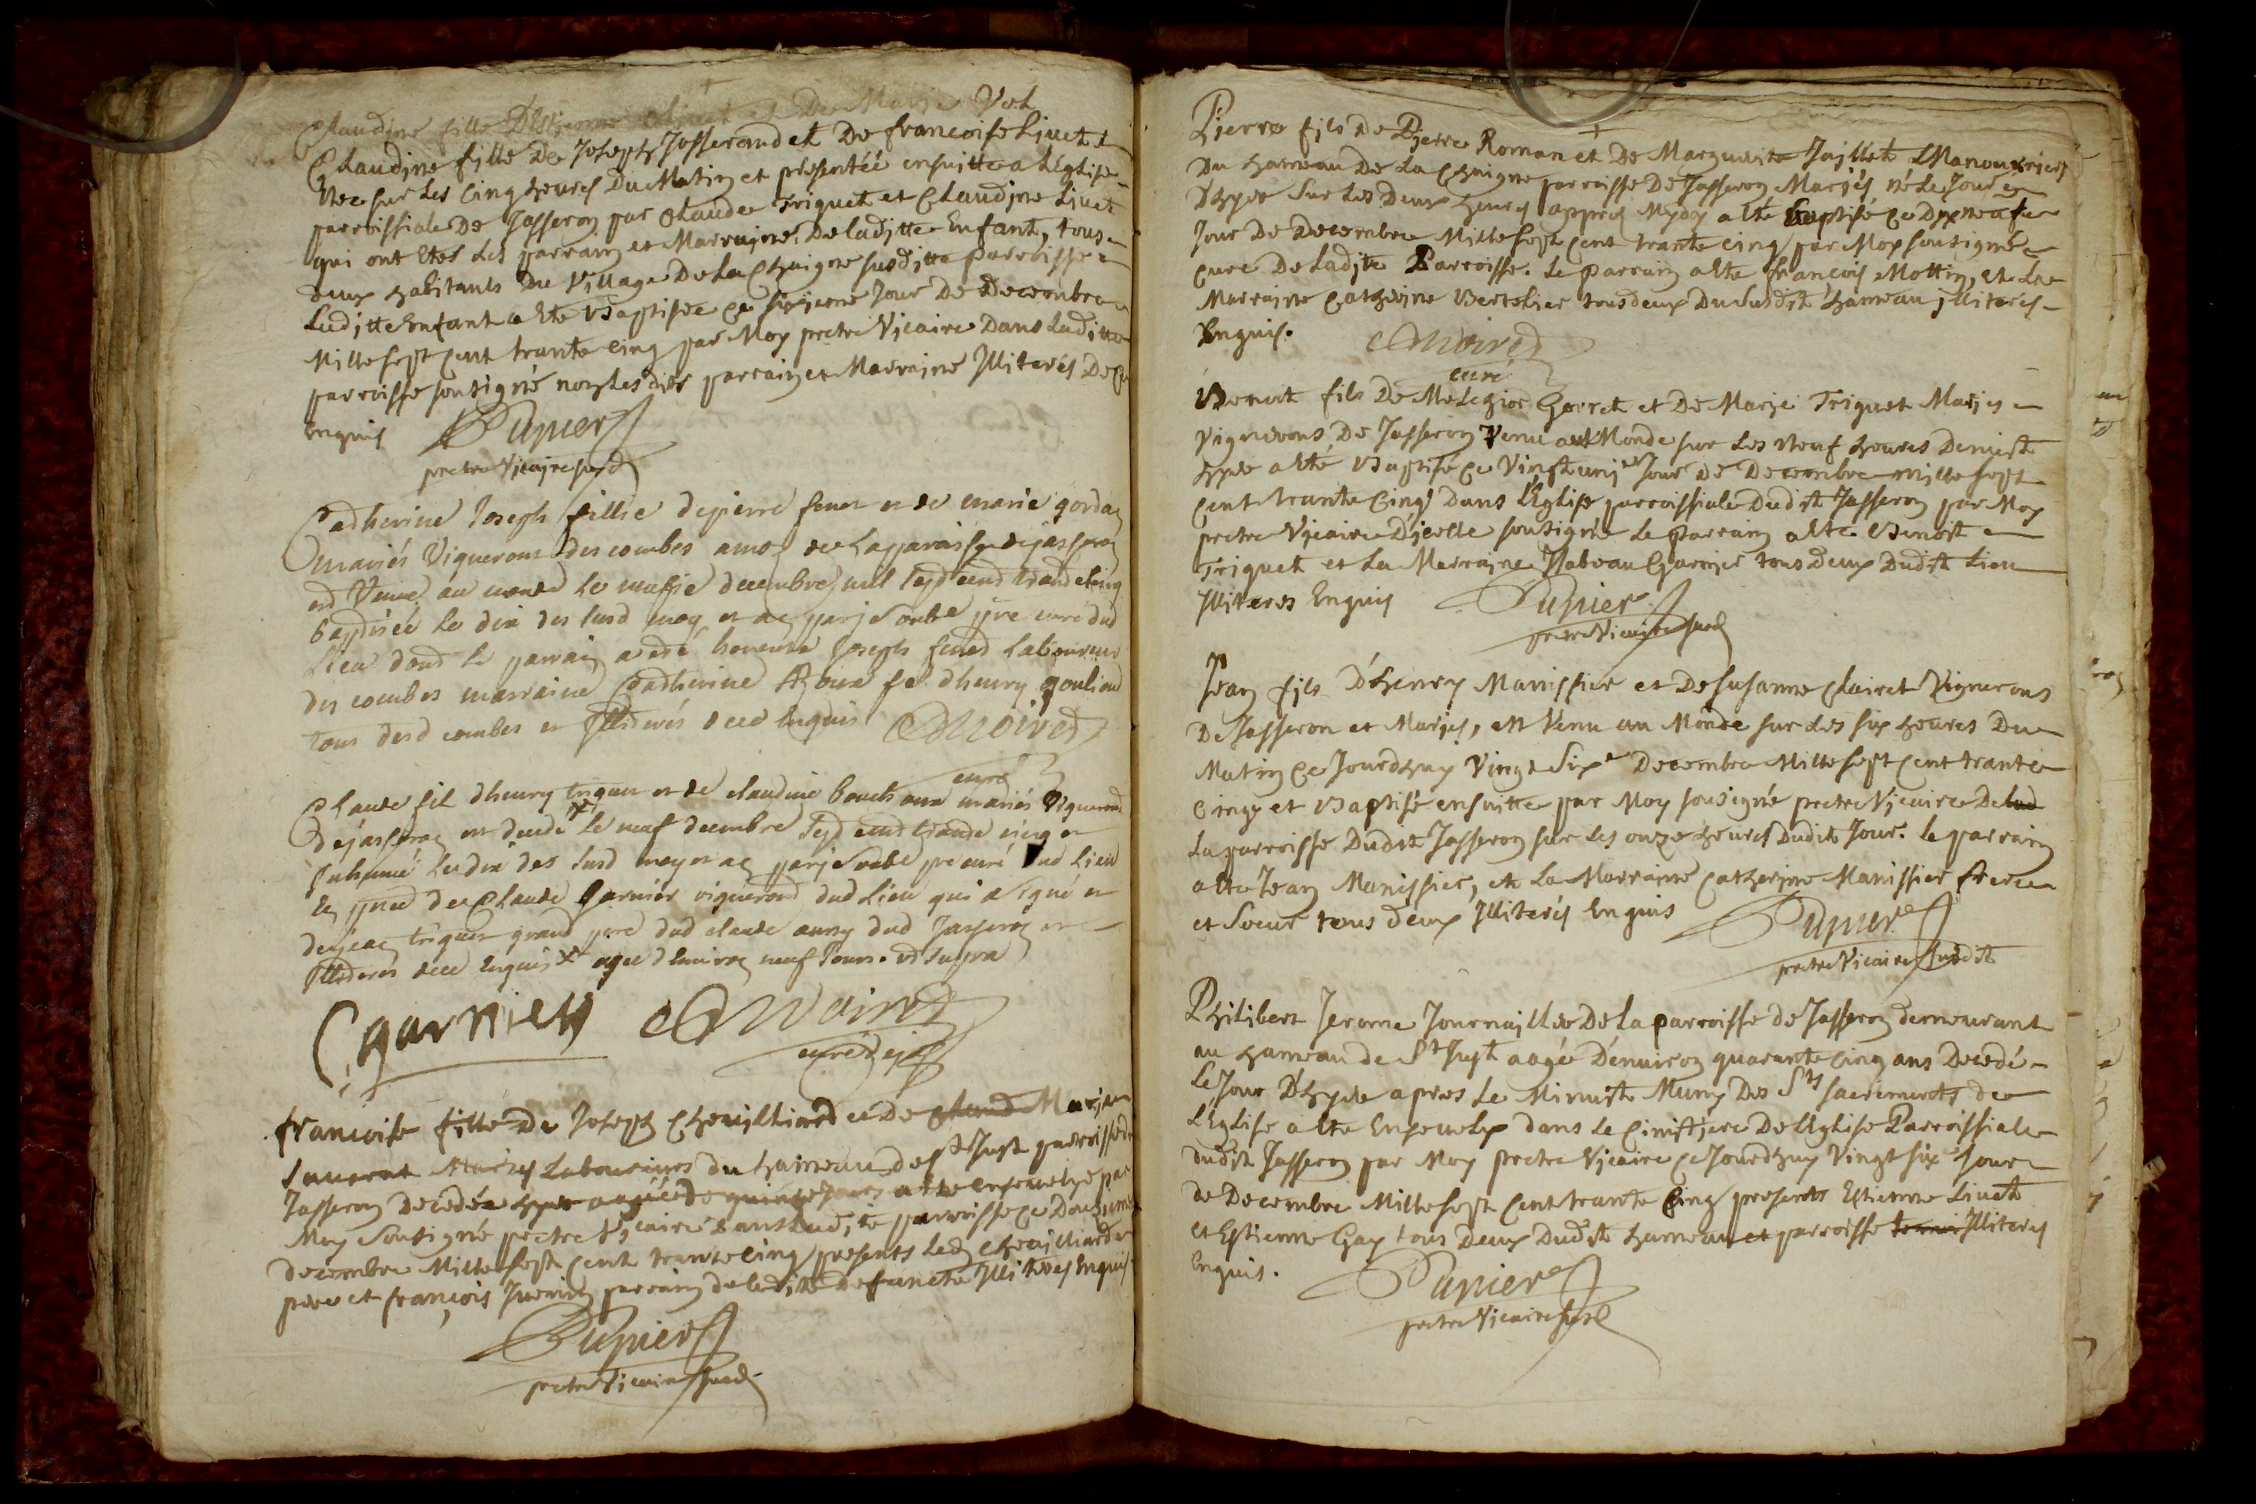 Claudine fille D'Estienne Livet et De Marie Vol
Claudine fille De Joseph Josserand et De francoise Livet
Née sur Les Cinq heures Du Matin et presentéé ensuitte a L'Eglise
parroissiale De Jasseron par Claude Triquet et Claudine Livet
qui ont Etes Les parrain et Marraine De laditte Enfant, tous
deux habitants Du Village De La Chaigne susditte parroisse
Laditte Enfant a Ete Baptisée ce sixieme Jour De Decembre
Mille sept Cent trante Cinq par Moy pretre Vicaire Dans Laditte
parroisse sousigné non les dits parrain et Marraine Illiterés De ce
Enquis Pupier
pretre Vicaire susd
Catherine Joseph fillie de pierre fenet et de marie gordan
mariés Vignerons des combes amoz de La paroisse de jasseron
est Venue au monde le neuf decembre mil sept cent trante cinq
baptisée le dix des susd moy et an par je soubs pre curé dud
Lieu dont le parrain a été honneste Joseph fenet Laboureur
des combes marraine Catherine fe d'henry gouliard
tous desd combes et Illiterés de ce Enquis Moiret
curé
Claude fil d'henry triquet et de claudine Bouchoux mariés Vignerons
de jasseron est decede le neuf decembre sept cent trante cinq et
Inhumé Le dix des susd moy et an par je soubs pre curé dud Lieu
En pnce de Claude Garnier vigneron dud Lieu qui a signé et
de jean triquet grand pere dud claude aussy dud Jasseron
Illiterés de ce Enquis agee d'environ neuf Jours. ut supra
C garnier Moiret
curé de jass
francoise fille De Joseph Chevilliard et De Claud Marie
Sauvrat Mariés Laboureurs du hameau de St Just parroisse de
Jasseron Decedée hyer aagée de quinze Jours a ete ensevelye par
Moy Sousigné pretre Vicaire dans Lad,te parroisse ce Douzieme
decembre Mille sept Cent trante Cinq presents Led Chevilliard
pere et françois parrain de ladite defuncte Illiteres Enquis
Pupier
pretre Vicaire susd
Pierre fils De Pierre Roman et De Marguerite Jaillet Manouvriers
Du hameau De La Chaigne parroisse De Jasseron Mariés né Le Jour
D'hyer Sur Les Deux heures appres Mydy a Ete Baptisé Ce Dix neufe
Jour De Decembre Mille sept Cent trante cinq par Moy sousigné
cure De Ladite Parroisse. Le parrain a Ete françois Mottin, et La
Marraine Catherine Bertelier tous deux Du susdit hameau jlliterés
Enquis. Moiret
curé
Benoit fils De Melchior Gorret et De Marie Triquet Mariés
Vignerons De Jasseron Venu au Monde sur Les Neuf heures De nuit
hyer a eté Baptisé ce Vingt unie Jour De Decembre mille sept
Cent trante Cinq Dans L'Eglise parroissiale Dudit Jasseron par Moy
pretre Vicaire D'icelle sousigné Le parrain a Ete Benoit
Triquet et La Marraine Ysabeau Garnier tous Deux Dudit Lieu
Illiteres Enquis Pupier
pretre Vicaire susd
Jean fils D'henry Manissier et De susanne Clairet Vignerons
De Jasseron et Mariés, est Venu au Monde sur Les six heures Du
Matin Ce Jourd'huy Vingt Sixe Decembre Mille sept Cent trante
Cinq et Baptisé ensuitte par Moy sousigné pretre Vicaire De lad
La parroisse Dudit Jasseron sur Les onze heures Dudit Jour. Le parrain
a Ete Jean Manissier, et La Marraine Catherine Manissier frere
et Soeur tous deux Illiterés Enquis Pupier
pretre Vicaire susdit
Philibert Jerome Journaillier De La parroisse de Jasseron demeurant
au hameau de St Just aagée D'environ quarante Cinq ans Decedé
Le Jour D'hyer apres Le Minuit Muny Des Sts sacrements de
L'Eglise a Ete Ensevelyx dans Le Cimistiere De l'Eglise Parroissiale
dudit Jasseron par Moy pretre Vicaire ce Jourd'huy Vingt sixe Jour
de Decembre Mille sept Cent trante Cinq presents Estienne Livet
et Estienne Gay tous Deux Dudit hameau et parroisse Illiteres
Enquis. Pupier
pretre Vicaire susd